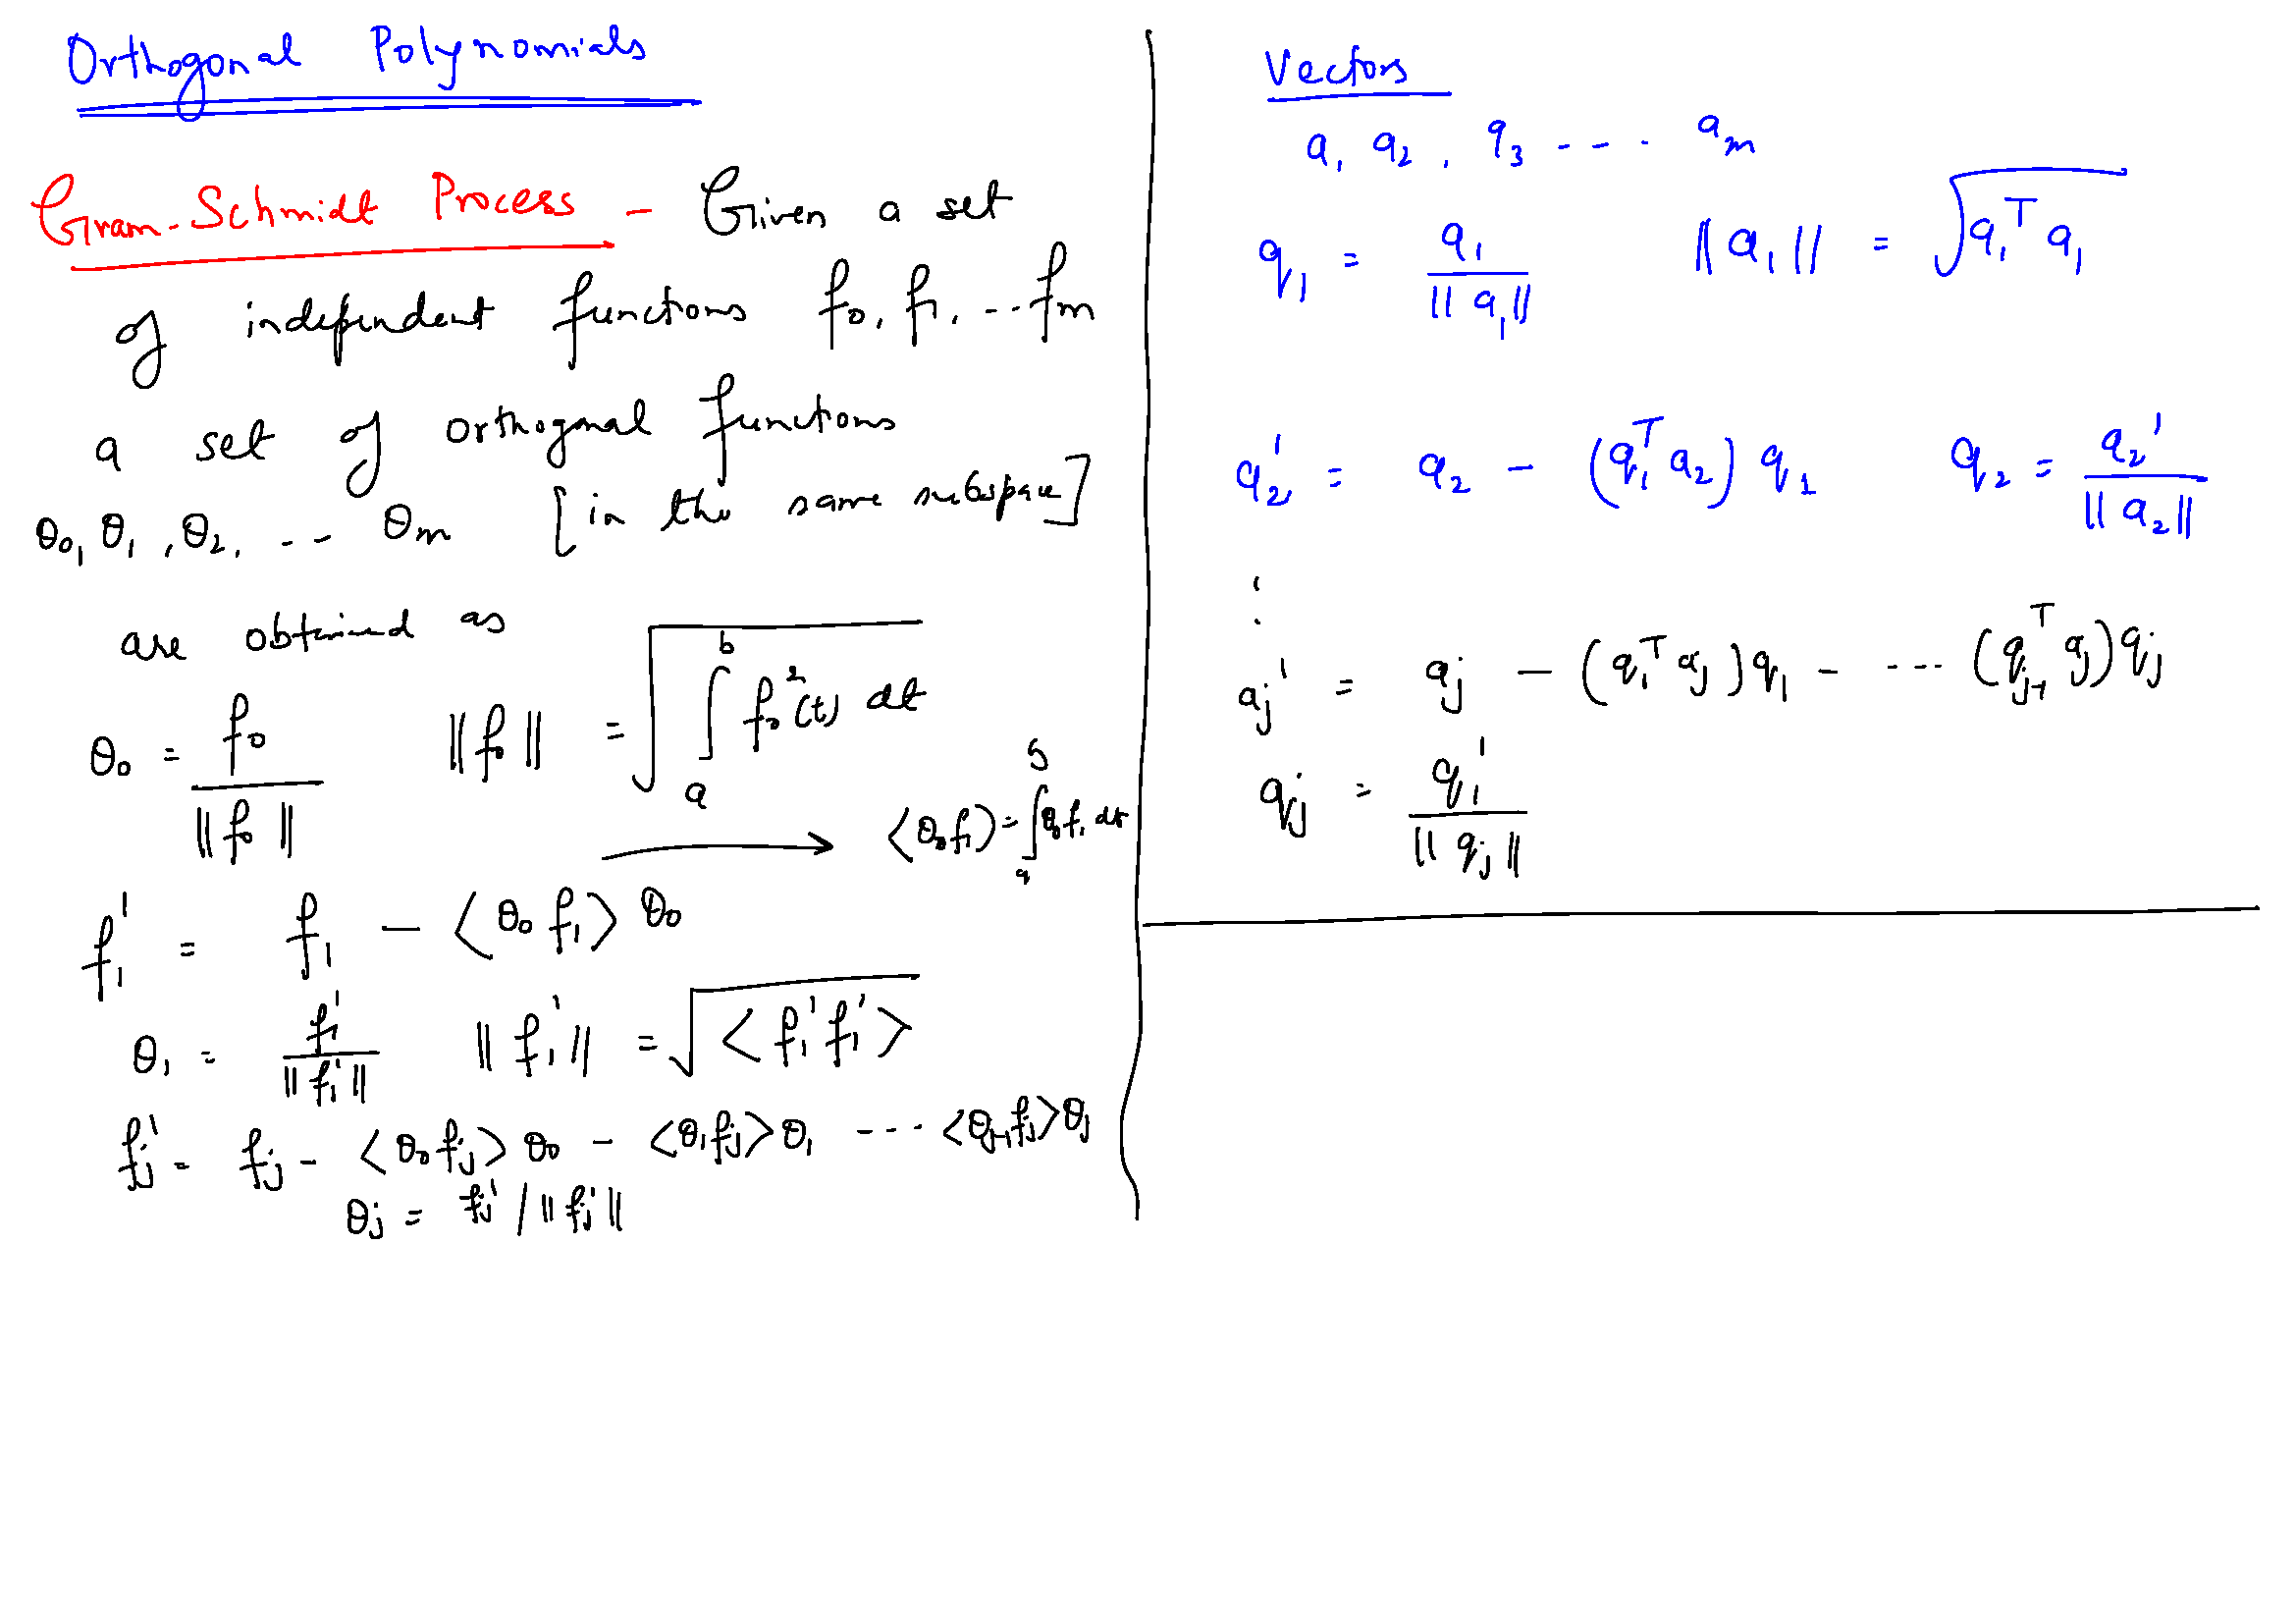 Orthogonal Polynomials
Gram-Schmidt Process - Given a set
of independent functions f₀, f₁, ... fm
a set of orthogonal functions
θ₀, θ₁, θ₂, ... θm [in the same subspace]
are obtained as
θ₀ = f₀ / ||f₀||   ||f₀|| = √(∫ₐᵇ f₀²(t) dt)
⟶ <θ₀f₁> = ∫ₐᵇ θ₀f₁ dt
f₁' = f₁ - <θ₀ f₁> θ₀
θ₁ = f₁' / ||f₁'||   ||f₁'|| = √<f₁' f₁'>
fj' = fj - <θ₀fj> θ₀ - <θ₁fj> θ₁ --- <θj-1 fj> θj
θj = fj' / ||fj'||
Vectors
a₁ a₂, a₃ ---. am
q₁ = a₁ / ||a₁||   ||a₁|| = √(a₁ᵀ a₁)
a₂' = a₂ - (q₁ᵀ a₂) q₁   q₂ = a₂' / ||a₂||
⋮
aj' = aj - (q₁ᵀ aj) q₁ - --- (qj-1ᵀ aj) qj
qj = q₁' / ||qj||